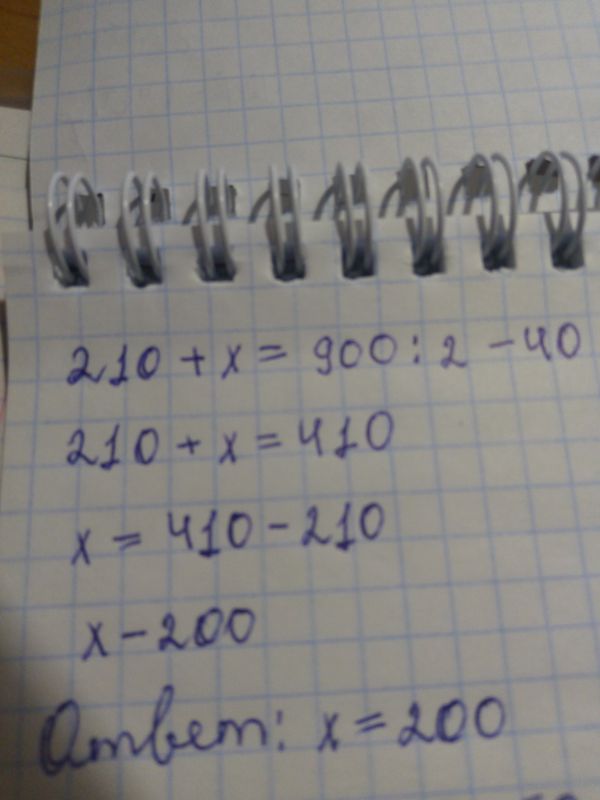 210 + x = 900 : 2 - 40
210 + x = 410
x = 410 - 210
x - 200
Ответ: x = 200